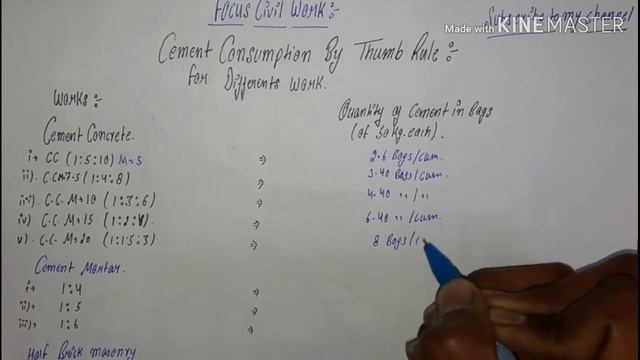 Focus Civil Work :-
Subscribe to my channel
Made with KINEMASTER
Cement Consumption By Thumb Rule :-
for Differents work.
Works :-
Quantity of Cement in Bags
(of 50 kg. each).
Cement Concrete.
i) CC (1:5:10) M-5 => 2.6 Bags/cum.
ii) C.C M 7.5 (1:4:8) => 3.40 Bags/cum.
iii) C.C. M-10 (1:3:6) => 4.40 " / "
iv) C.C. M-15 (1:2:4) => 6.40 " /cum.
v) C.C. M-20 (1:1.5:3) => 8 Bags/c
Cement Mortar.
i) 1:4 =>
ii) 1:5 =>
iii) 1:6 =>
Half Brick masonry.